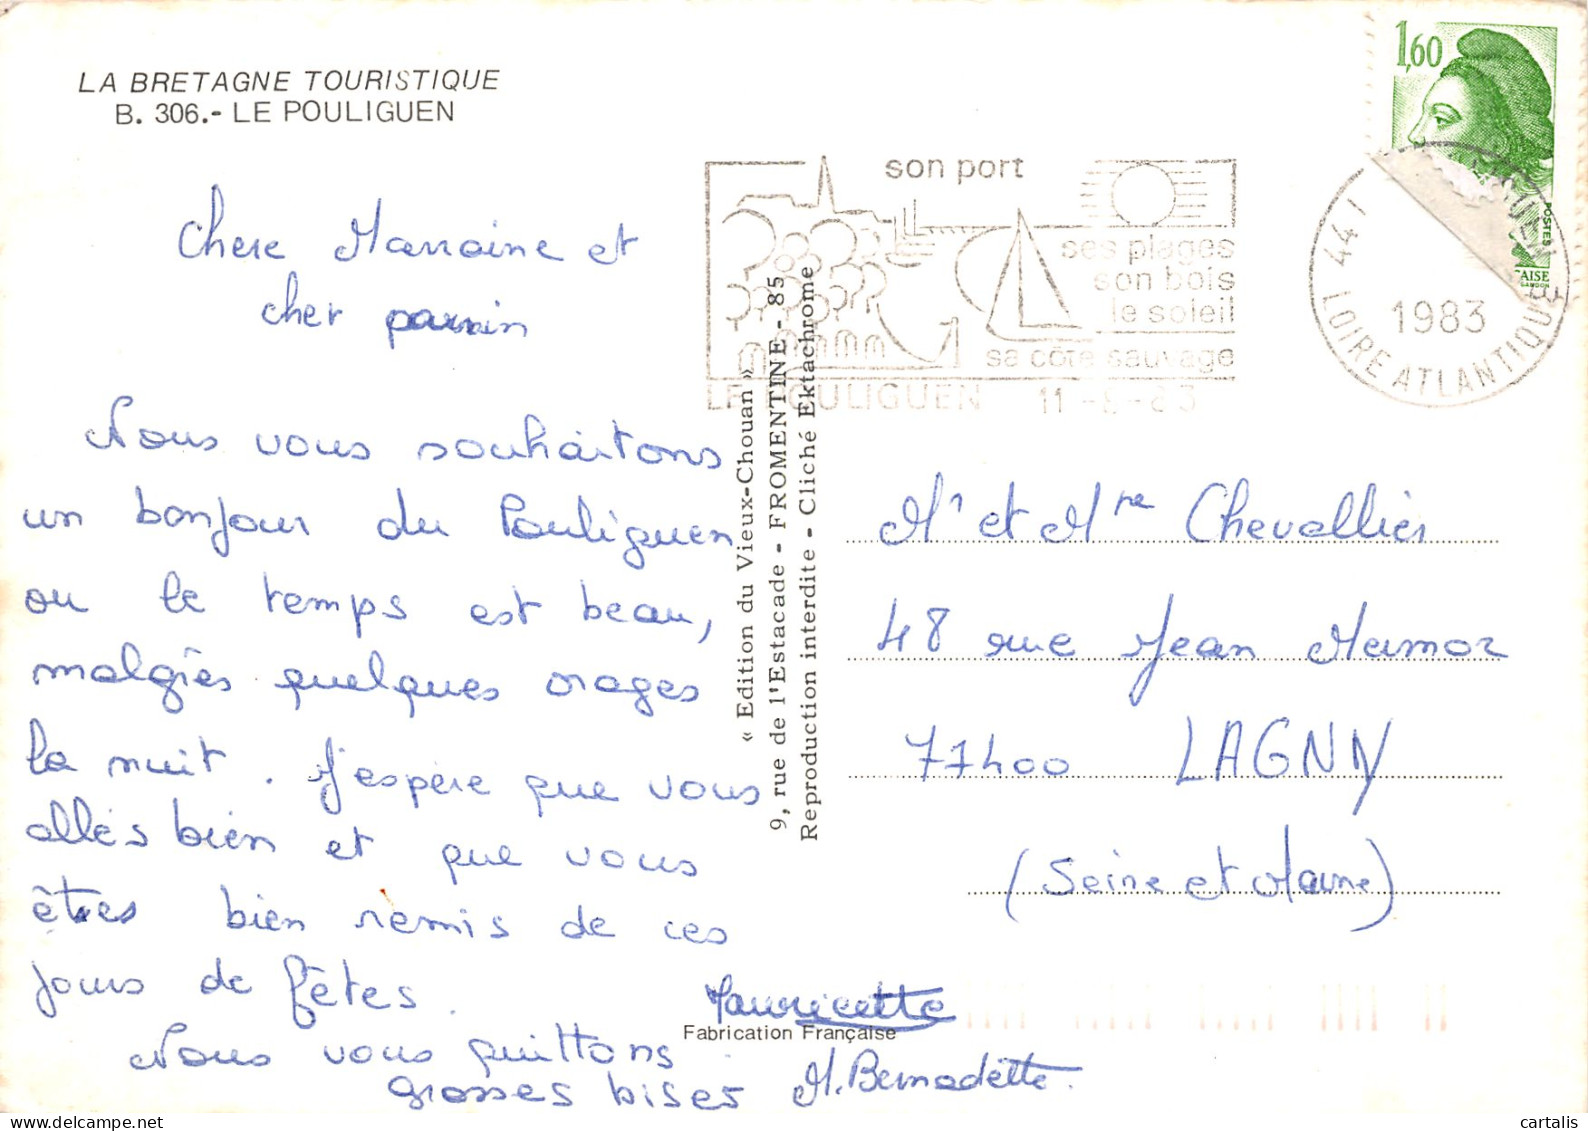 LA BRETAGNE TOURISTIQUE
B. 306.- LE POULIGUEN
Chere Marraine et
cher parrain
Nous vous souhaitons
un bonjour du Pouliguen
ou le temps est beau,
malgrès quelques orages
la nuit. J'espère que vous
allès bien et que vous
êtes bien remis de ces
jours de fêtes.
Nous vous quittons
grosses bises
Mauricette
M. Bernadette.
« Edition du Vieux-Chouan »
9, rue de l'Estacade - FROMENTINE - 85
Reproduction interdite - Cliché Ektachrome
Fabrication Française
son port
ses plages
son bois
le soleil
sa côte sauvage
LE POULIGUEN 11-8-83
1,60
POSTES
44
1983
LOIRE ATLANTIQUE
Mr et Mme Chevallier
48 rue Jean Mermoz
77400 LAGNY
(Seine et Marne)
cartalis